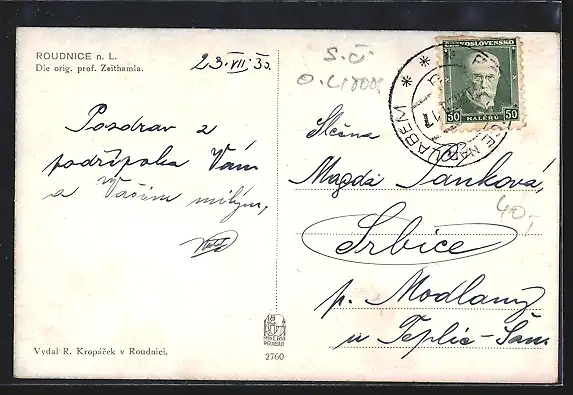 ROUDNICE n. L.
Dle orig. prof. Zeithamla.
23.VII.35.
Pozdrav z
podřipska Vám
a Vašim milým,
Vydal R. Kropáček v Roudnici.
MINERVA
PRAGUE
2760
S.Č.
O. LITOM
ČESKOSLOVENSKO
50 HALÉRŮ 50
NAD LABEM
17
Slečna
Magda Janková,
40,-
Srbice
p. Modlany
u Teplic-Šan